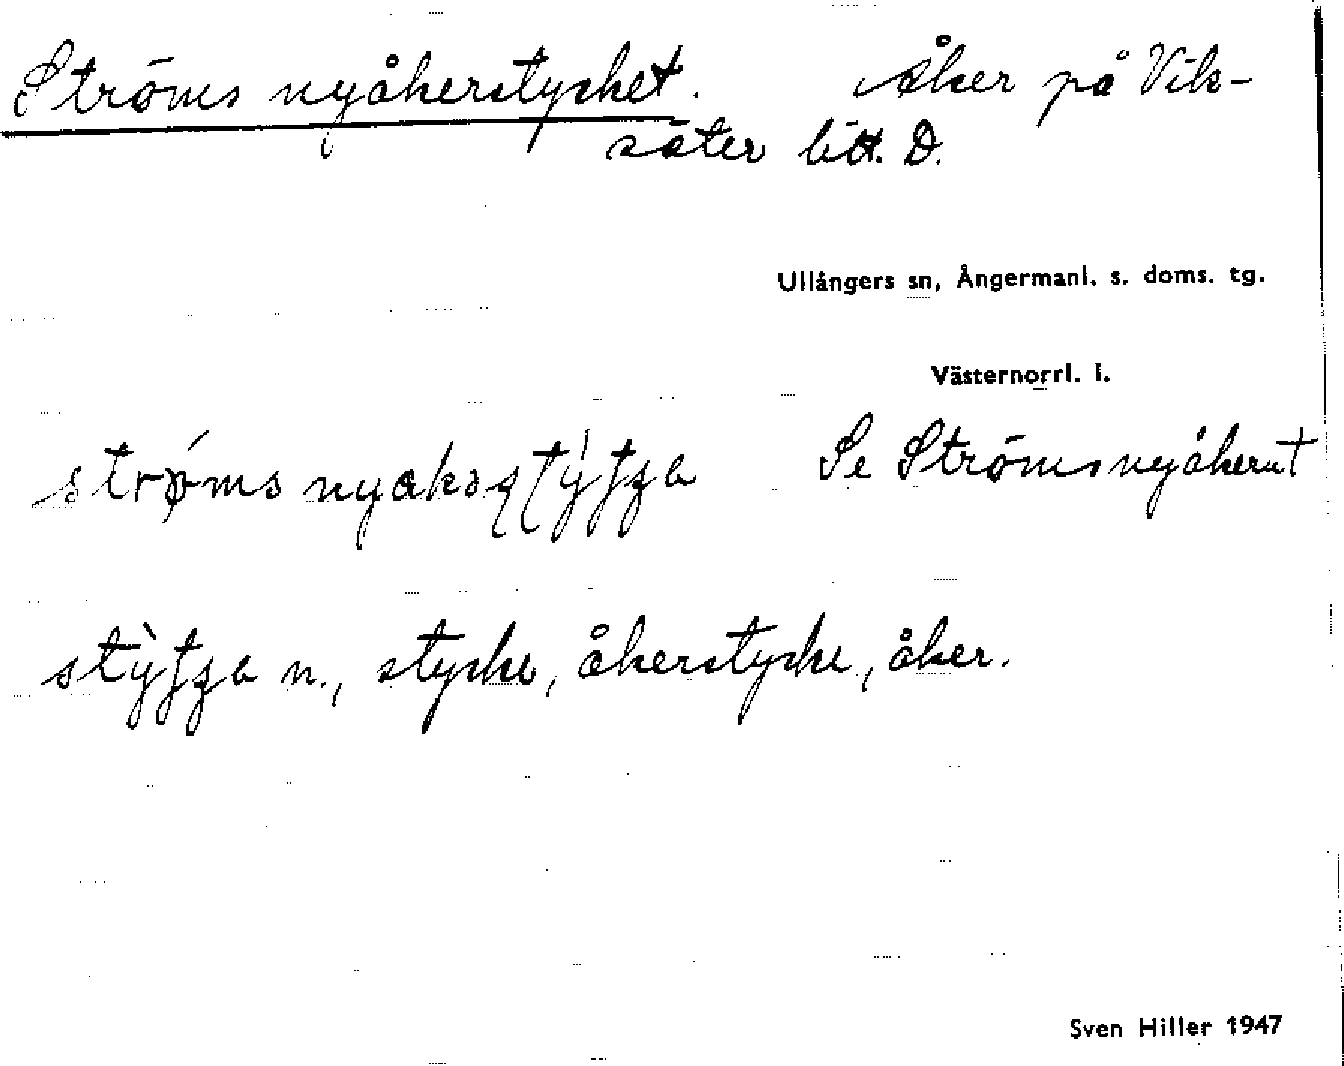 Ströms nyåkerstycket. Åker på Vik-
säter litt. D.
Ullångers sn, Ångermanl. s. doms. tg.
Västernorrl. l.
Se Ströms nyåkern †
n., stycke, åkerstycke, åker.
Sven Hiller 1947